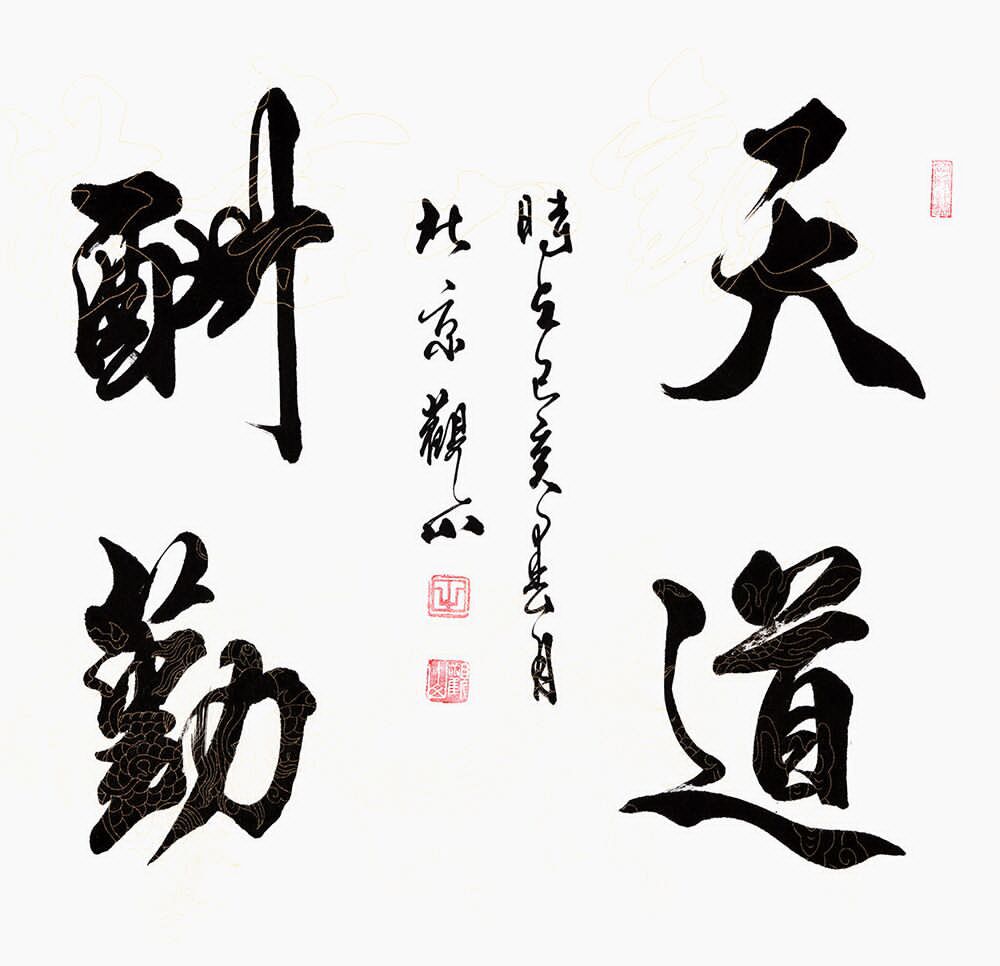 天道
酬勤
時在己亥年春月
北京觀山